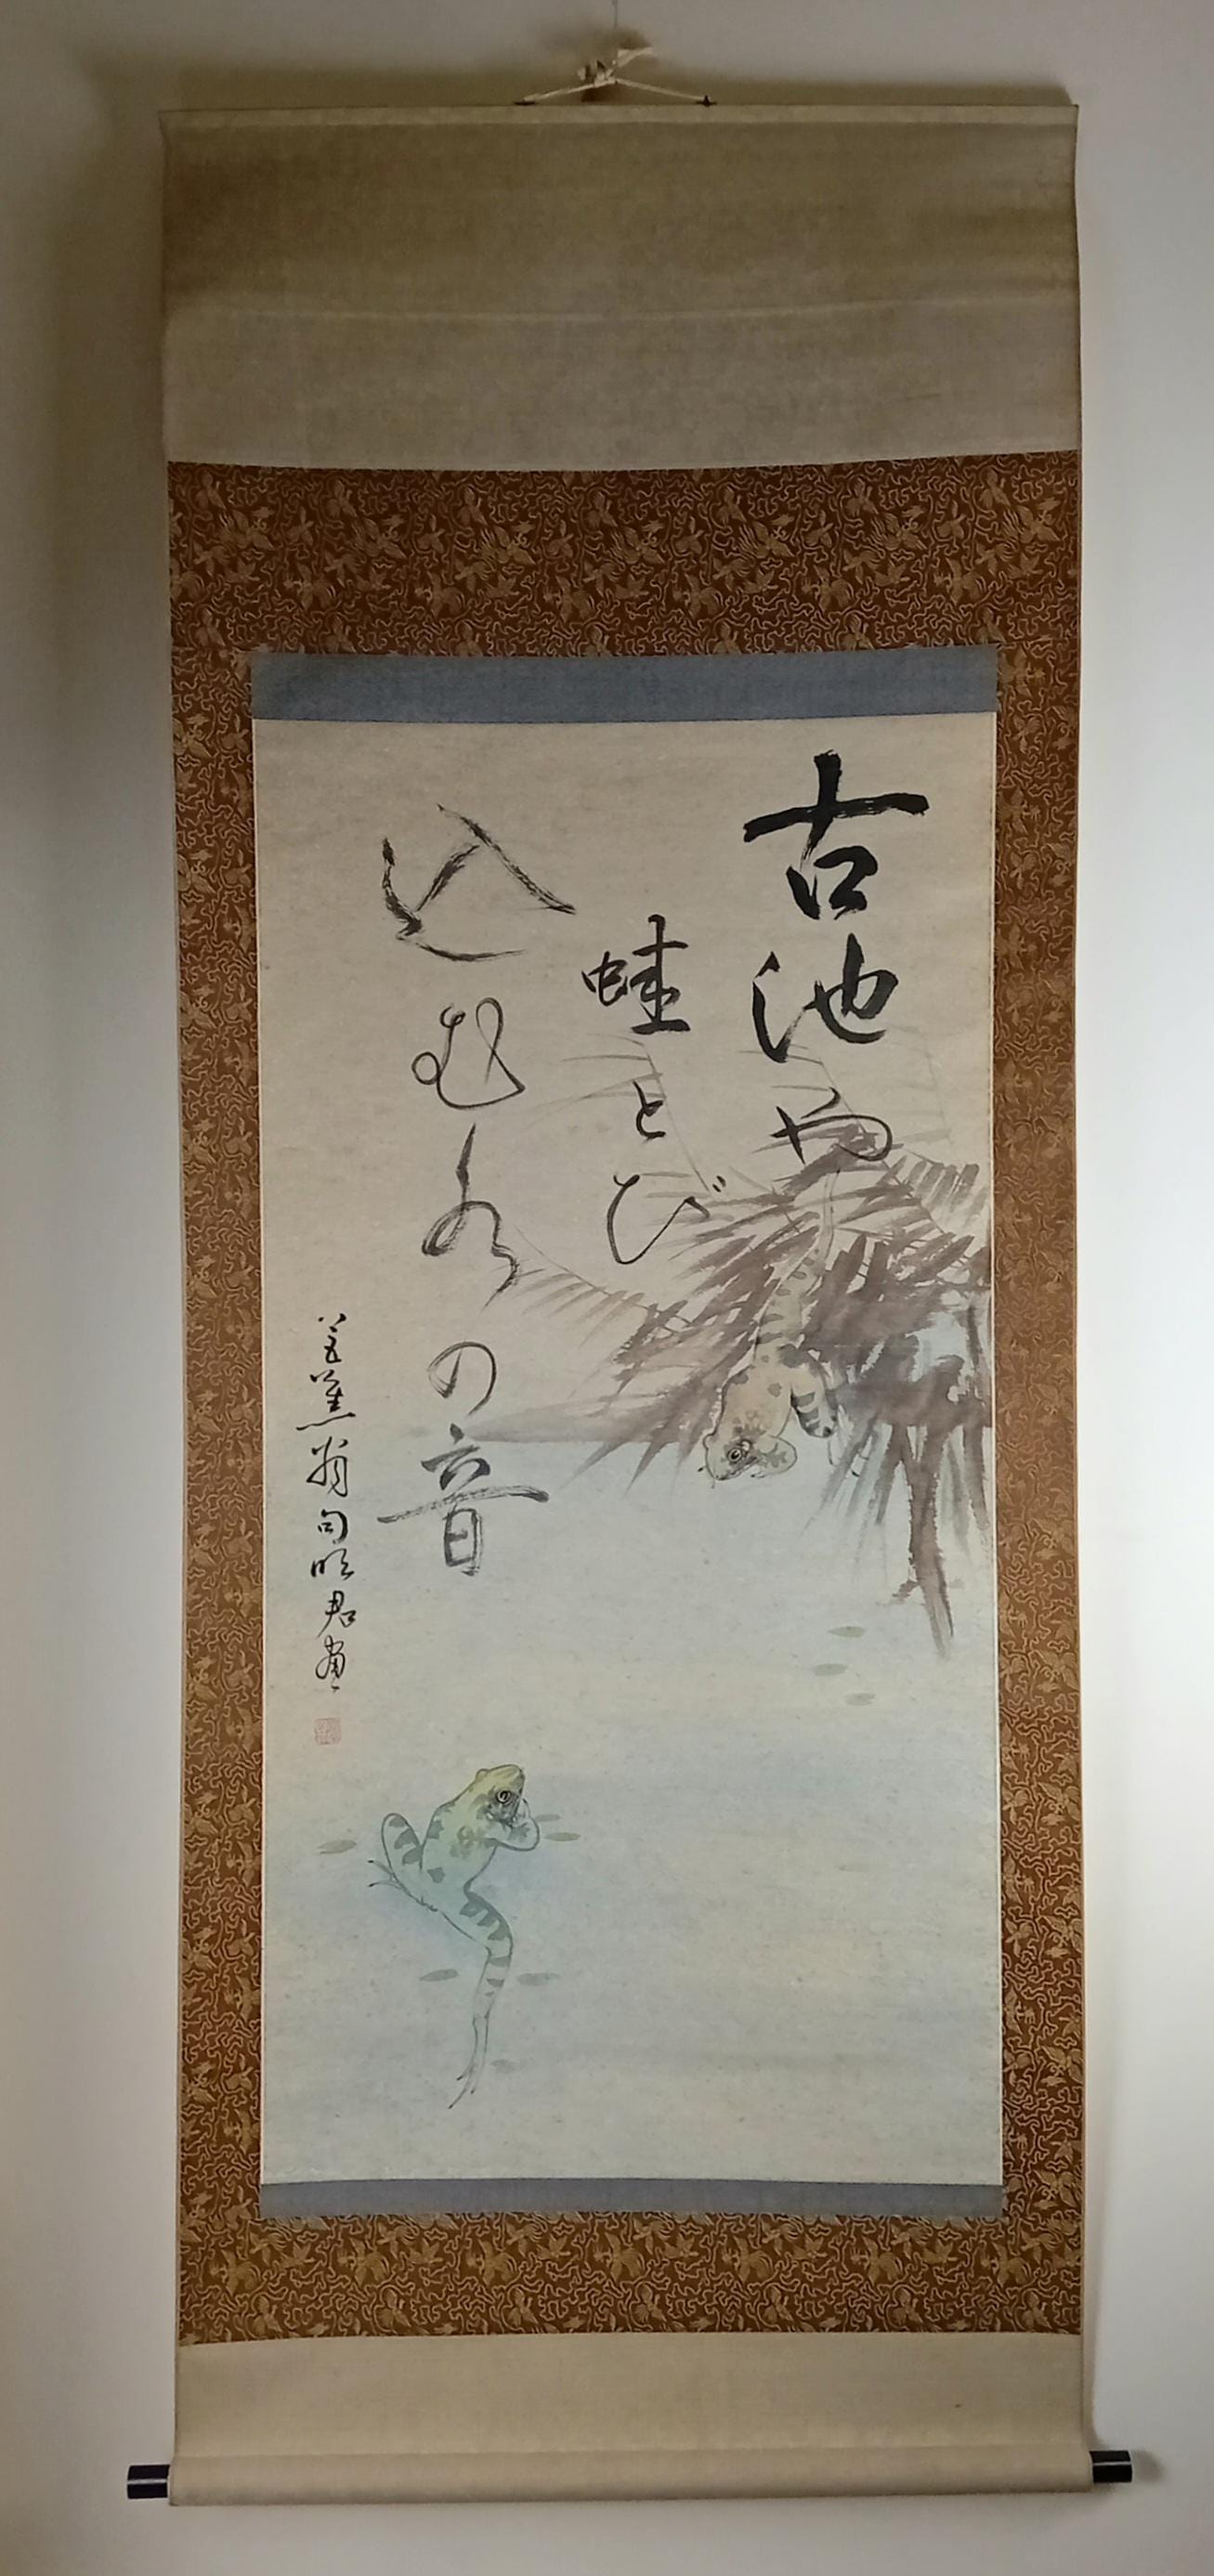 古池や
蛙とび
込む水の音
芭蕉翁句明君画